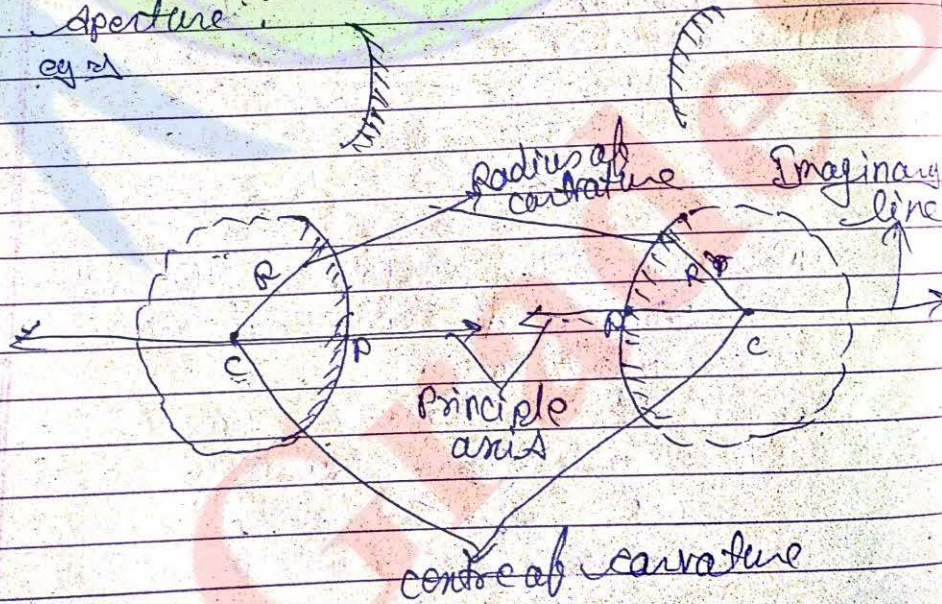 Aperture.
eg
Radius of
carvature
Imaginary
line
R
R
C
P
P
C
Principle
axis
centre of carvature